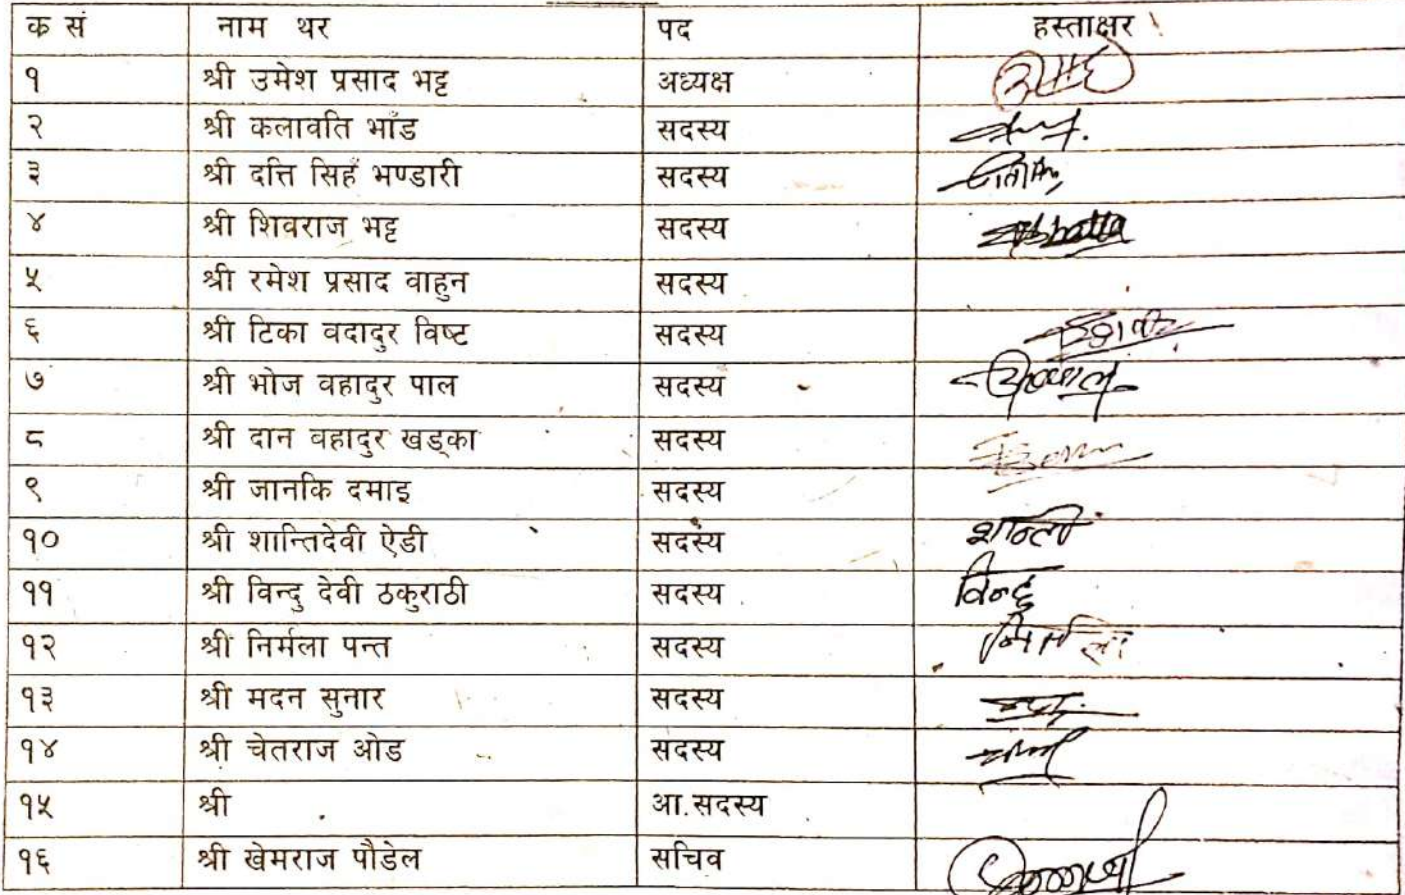 क सं नाम थर पद हस्ताक्षर
१ श्री उमेश प्रसाद भट्ट अध्यक्ष
२ श्री कलावति भाँड सदस्य
३ श्री दत्ति सिहँ भण्डारी सदस्य
४ श्री शिवराज भट्ट सदस्य
५ श्री रमेश प्रसाद वाहुन सदस्य
६ श्री टिका वदादुर विष्ट सदस्य
७ श्री भोज वहादुर पाल सदस्य
८ श्री दान वहादुर खड्का सदस्य
९ श्री जानकि दमाइ सदस्य
१० श्री शान्तिदेवी ऐडी सदस्य शान्ती
११ श्री विन्दु देवी ठकुराठी सदस्य विन्दु
१२ श्री निर्मला पन्त सदस्य
१३ श्री मदन सुनार सदस्य
१४ श्री चेतराज ओड सदस्य
१५ श्री आ.सदस्य
१६ श्री खेमराज पौडेल सचिव